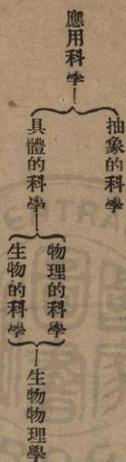 應用科學
抽象的科學
具體的科學
物理的科學
生物的科學
生物物理學